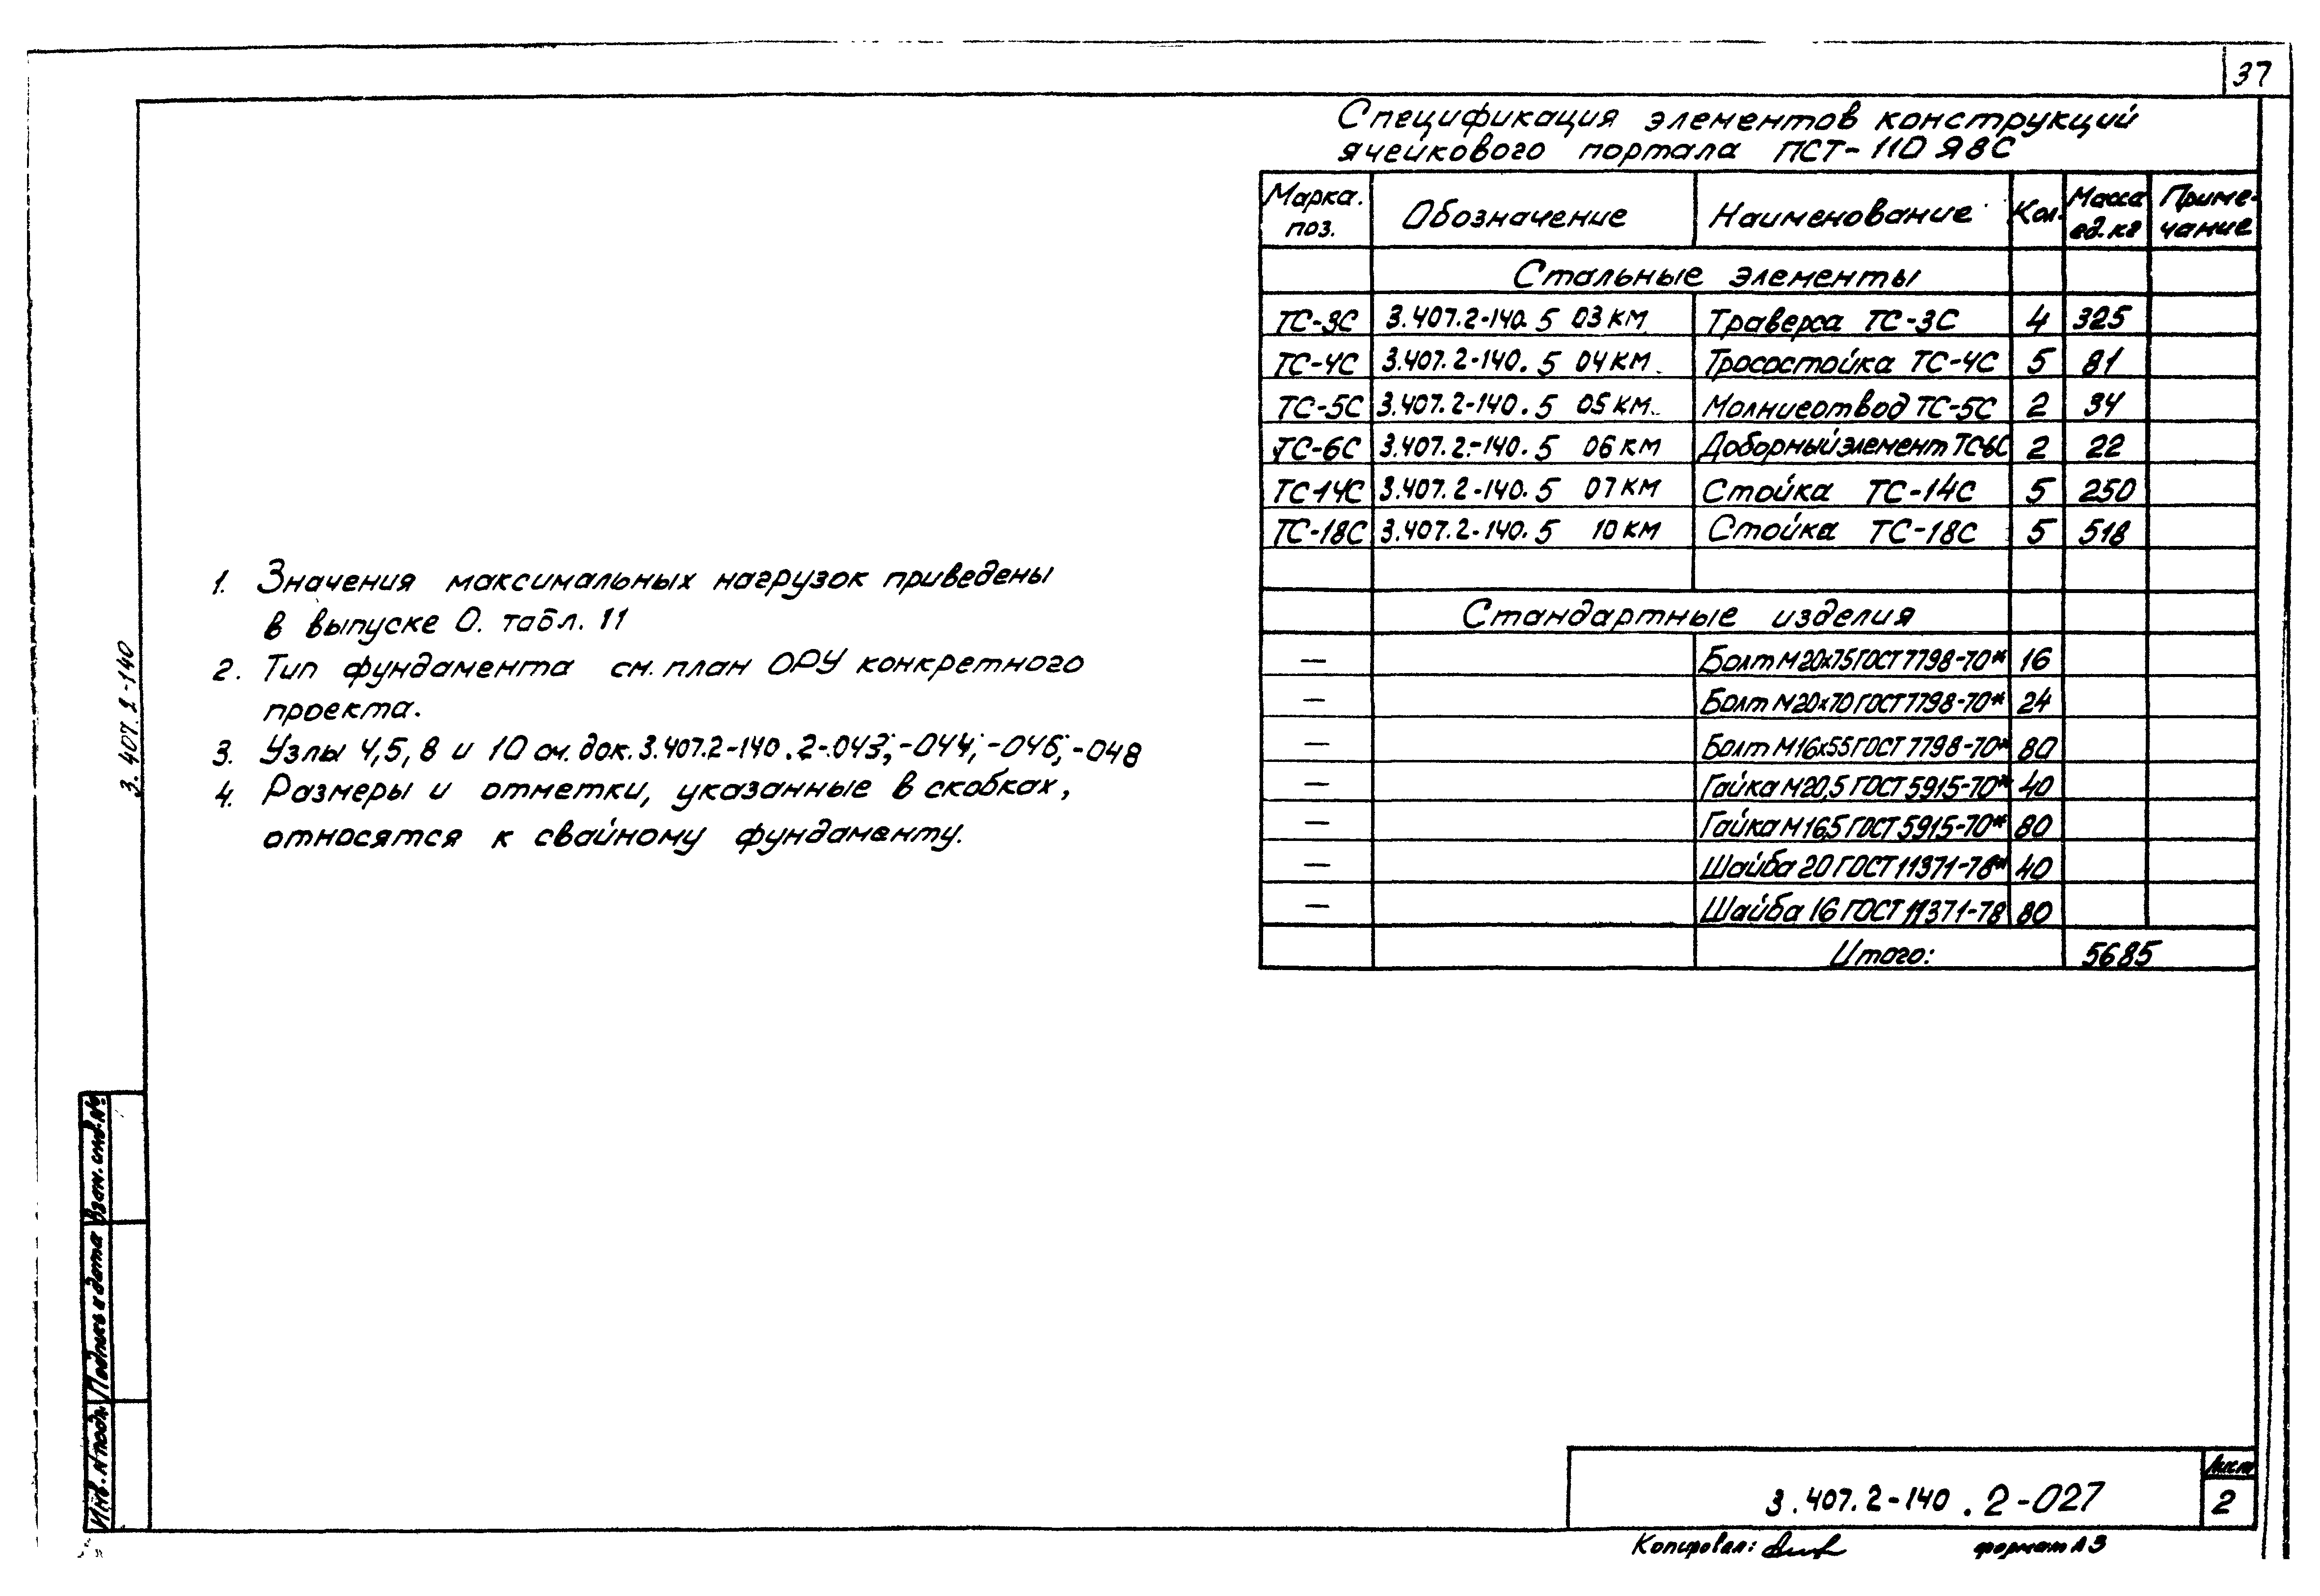 37
Спецификация элементов конструкций
ячейкового портала ПСТ-110 Я8С
Марка. поз. Обозначение Наименование Кол. Масса ед. кг Приме-чание
Стальные элементы
ТС-3С 3.407.2-140.5 03 КМ Траверса ТС-3С 4 325
ТС-4С 3.407.2-140.5 04 КМ Тросостойка ТС-4С 5 81
ТС-5С 3.407.2-140.5 05 КМ Молниеотвод ТС-5С 2 34
ТС-6С 3.407.2-140.5 06 КМ Доборный элемент ТС-6С 2 22
ТС-14С 3.407.2-140.5 07 КМ Стойка ТС-14С 5 250
ТС-18С 3.407.2-140.5 10 КМ Стойка ТС-18С 5 518
Стандартные изделия
— Болт М20х75 ГОСТ 7798-70* 16
— Болт М20х70 ГОСТ 7798-70* 24
— Болт М16х55 ГОСТ 7798-70* 80
— Гайка М20,5 ГОСТ 5915-70* 40
— Гайка М16,5 ГОСТ 5915-70* 80
— Шайба 20 ГОСТ 11371-78* 40
— Шайба 16 ГОСТ 11371-78 80
Итого: 5685
1. Значения максимальных нагрузок приведены
в выпуске 0. табл. 11
2. Тип фундамента см. план ОРУ конкретного
проекта.
3. Узлы 4,5,8 и 10 см. док. 3.407.2-140.2-043; -044; -046; -048
4. Размеры и отметки, указанные в скобках,
относятся к свайному фундаменту.
3.407.2-140
Взам. инв. №
Подпись и дата
Инв. № подл.
3.407.2-140.2-027
Лист
2
Копировал:
формат А3